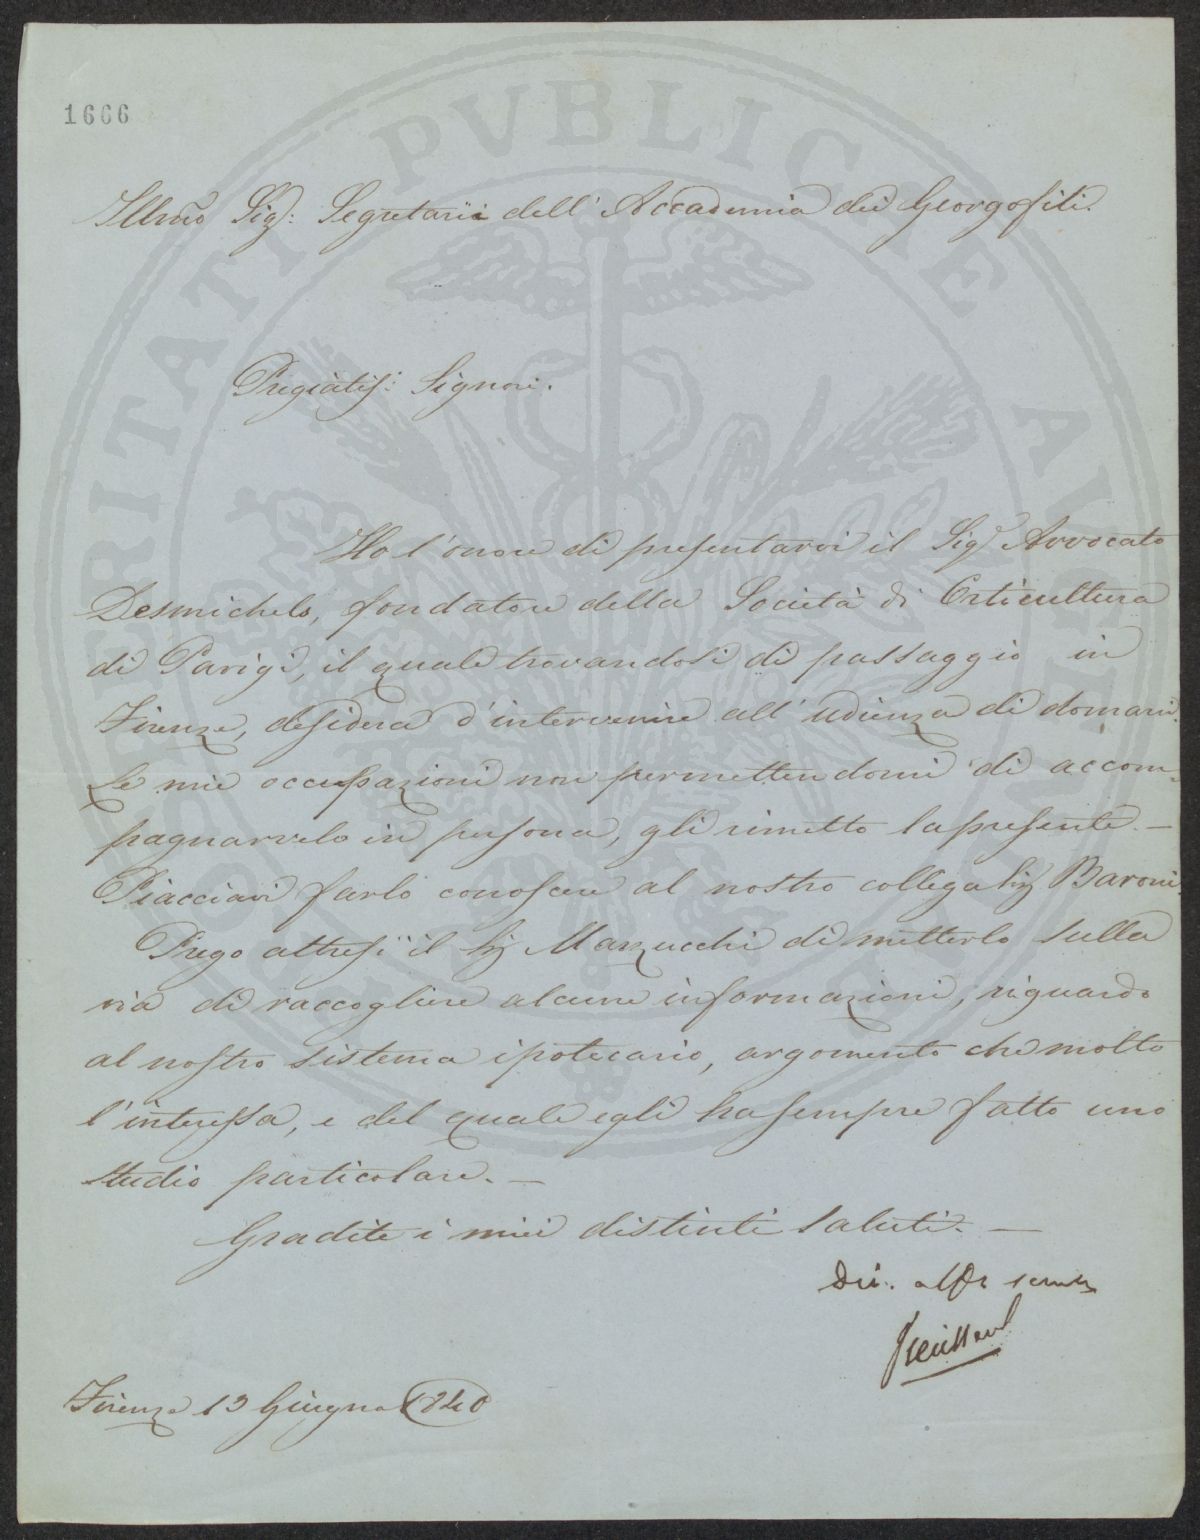 1666
Illmo Sig: Segretarii dell' Accademia dei Georgofili.
Pregiatis: Signori.
Ho l'onore di presentarvi il Sig Avvocato
Desmichels, fondatore della Società di Orticultura
di Parigi, il quale trovandosi di passaggio in
Firenze, desidera d'intervenire all' udienza di domani.
Le mie occupazioni non permettendomi di accom-
pagnarvelo in persona, gli rimetto la presente. —
Piacciavi farlo conoscere al nostro collega Sig Baroni.
Prego altresì il Sig Marzucchi di metterlo sulla
via di raccogliere alcune informazioni, riguardo
al nostro sistema ipotecario, argomento che molto
l'interessa, e del quale egli ha sempre fatto uno
studio particolare. —
Gradite i miei distinti saluti. —
Firenze 13 Giugno 1840
PROSPERITATI PVBLICAE AVGENDAE